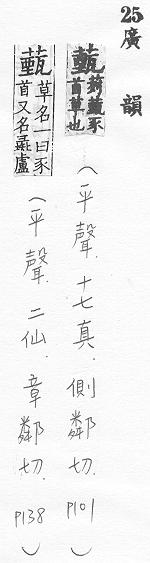 25廣韻
薽
茢薽豕
首草也
(平聲.十七真.側鄰切.P101)
薽
草名一曰豕
首又名彘盧
(平聲.二仙.章鄰切.P138)